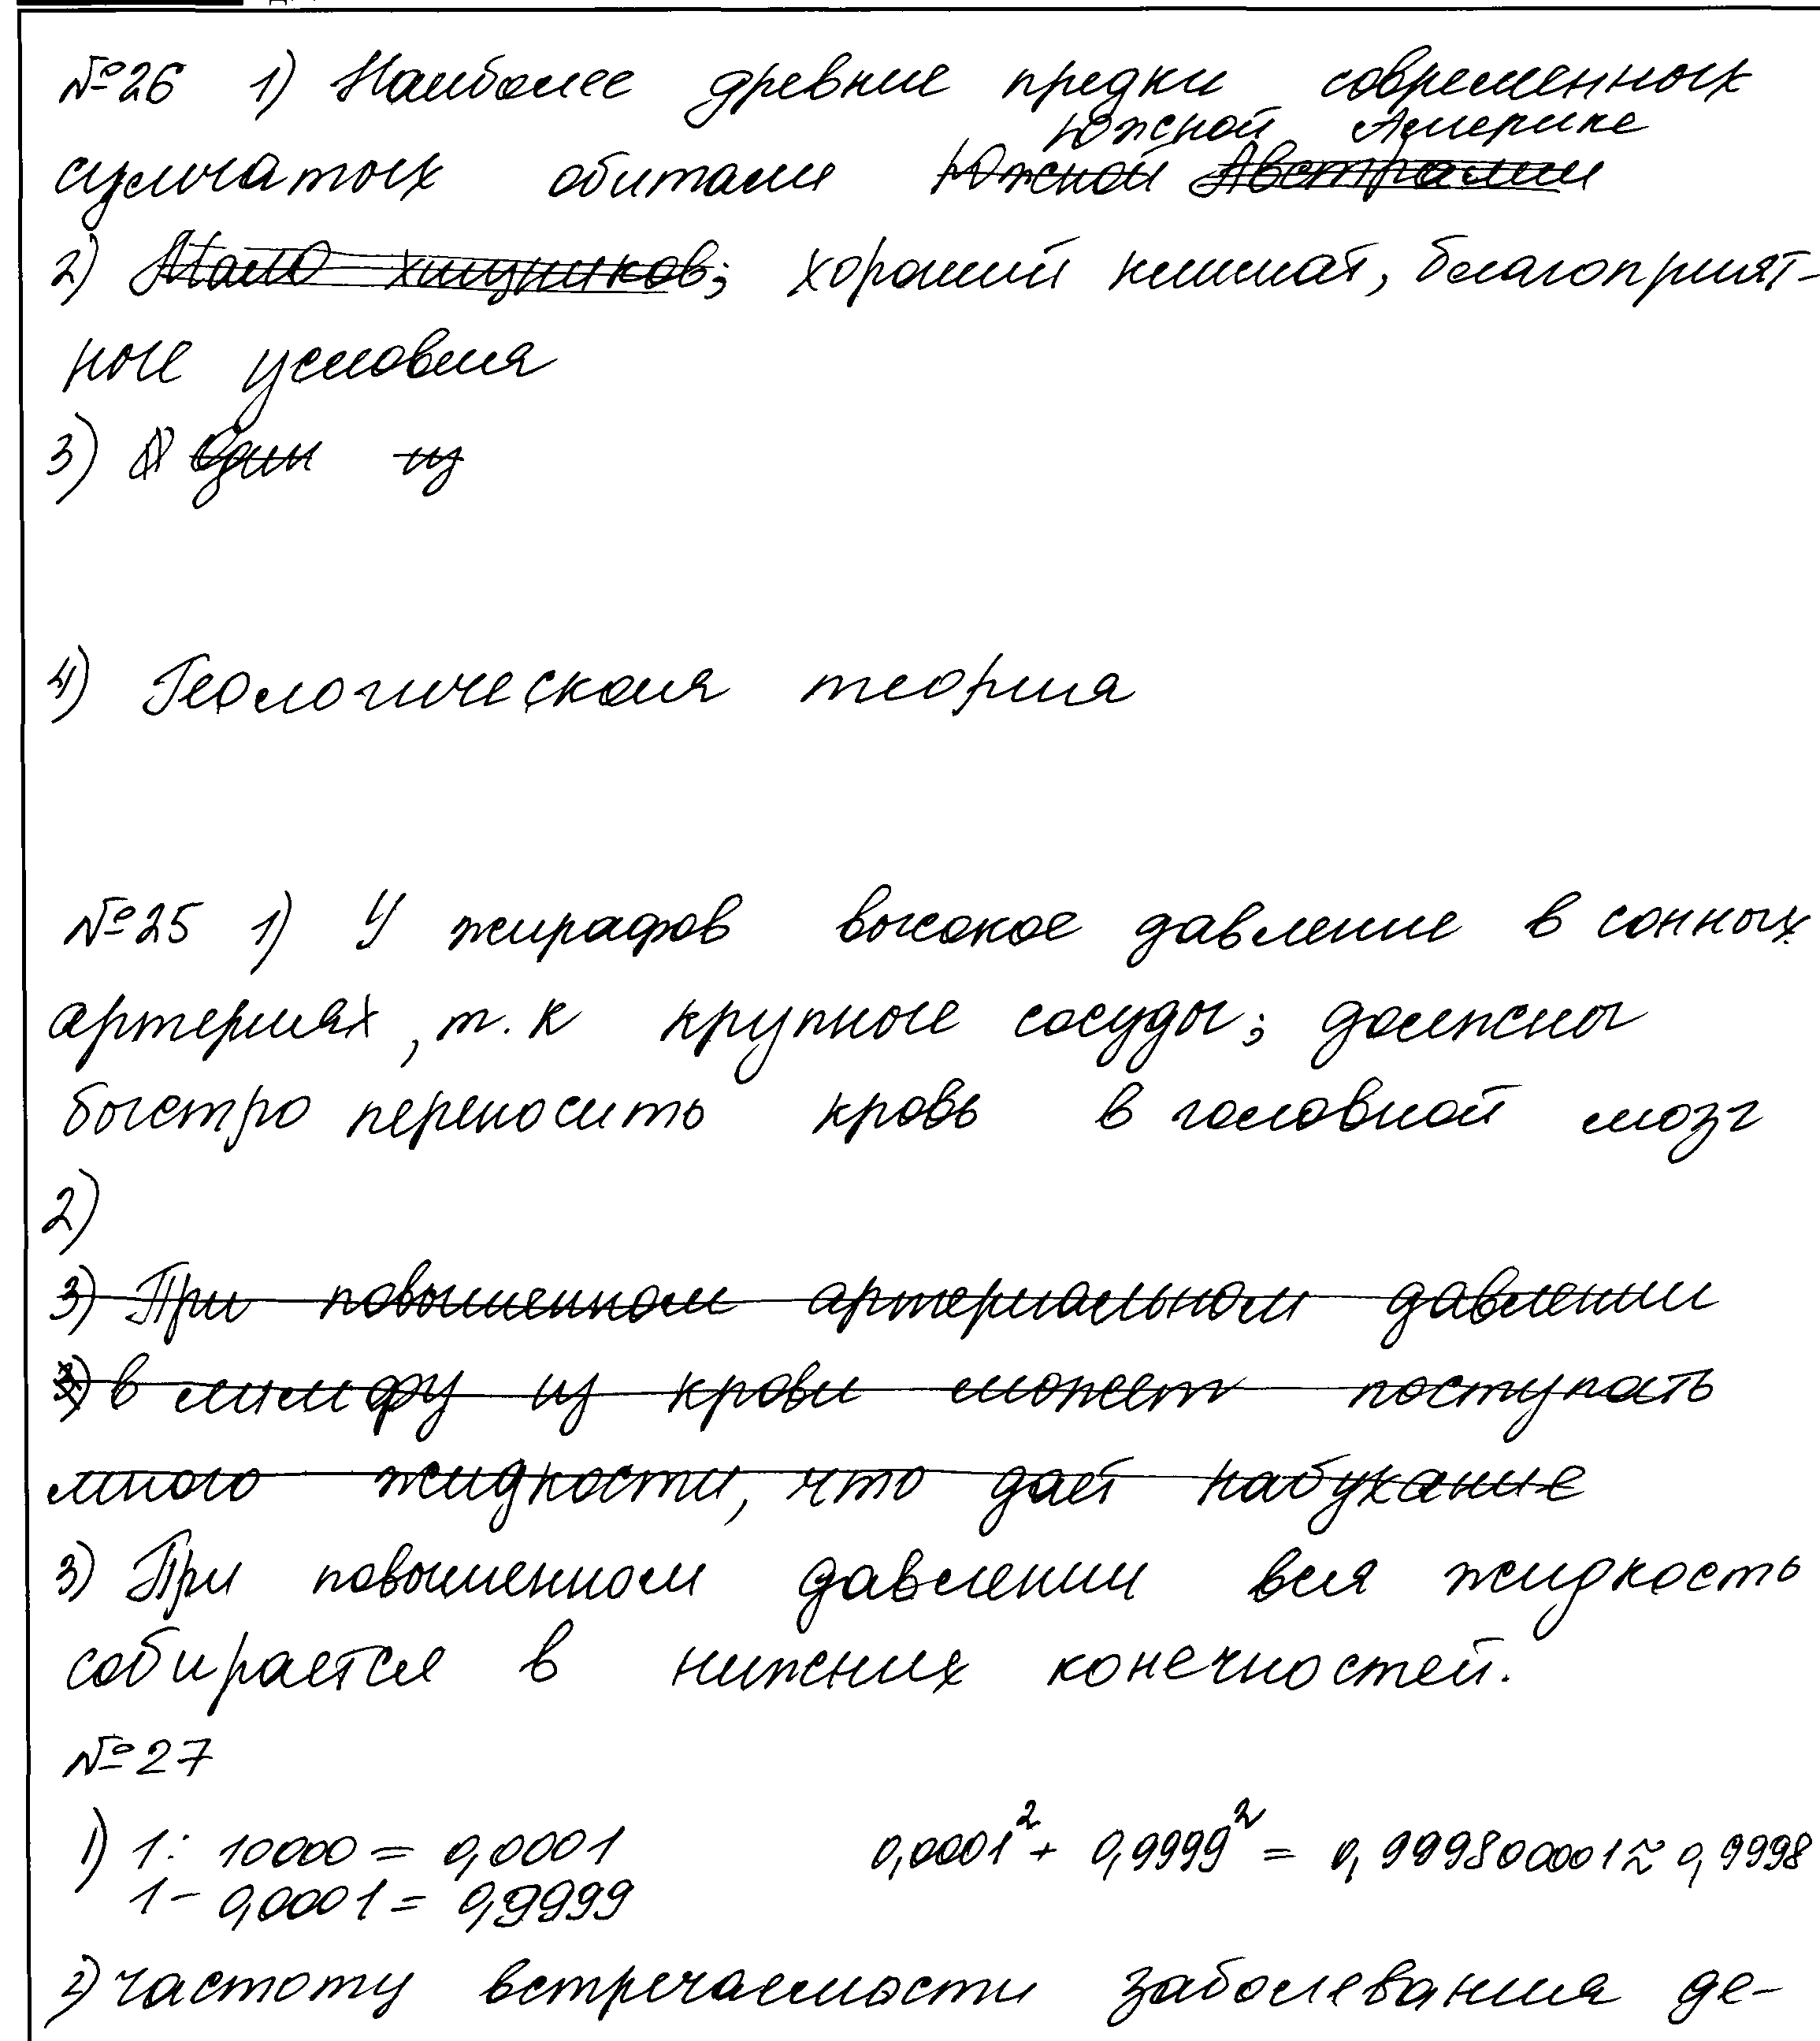 №26 1) Наиболее древние предки современных
Южной Америке
сумчатых обитали Южной Австралии
2) Мало хищников; хороший климат, благоприят-
ные условия
3) Один из
4) Геологическая теория
№25 1) У жирафов высокое давление в сонных
артериях, т.к крупные сосуды; должны
быстро переносить кровь в головной мозг
2)
3) При повышенном артериальном давлении
в лимфу из крови может поступать
много жидкости, что даёт набухание
3) При повышенном давлении вся жидкость
собирается в нижних конечностей.
№27
1) 1: 10000 = 0,0001 0,0001² + 0,9999² = 0,999800001 ≈ 0,9998
1 - 0,0001 = 0,9999
2) частоту встречаемости заболевания де-